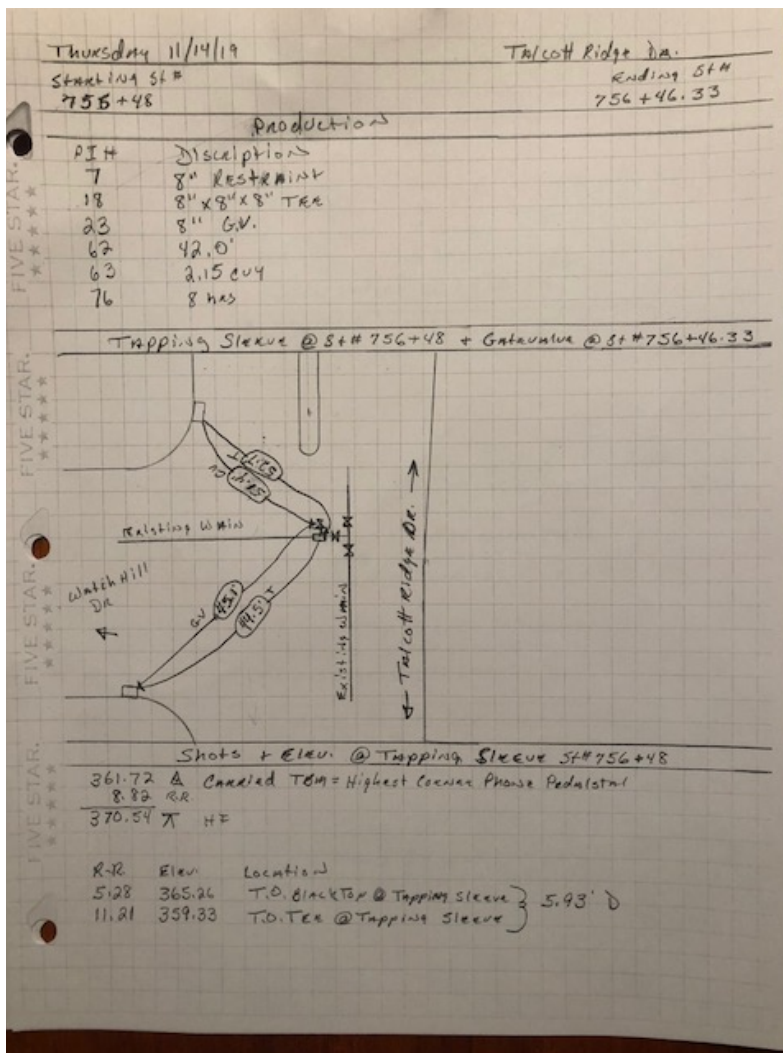 Thursday 11/14/19 Talcott Ridge Dr.
Starting St # Ending St#
755+48 756+46.33
Production
PI# Discription
7 8" Restraint
18 8"x8"x8" Tee
23 8" G.V.
62 42.0'
63 2.15 cuy
76 8 hrs
Tapping Sleeve @ St# 756+48 + Gatevalve @ St#756+46.33
52.7' T
GV
Existing WMain
Watch Hill
Dr
GV 45.1'
44.5' T
Existing WMain
Talcott Ridge Dr.
Shots + Elev. @ Tapping Sleeve St#756+48
361.72 Carried TBM = Highest Corner Phone Pedalstal
8.82 R.R.
370.54 HI
R.R. Elev. Location
5.28 365.26 T.O. Blacktop @ Tapping Sleeve
11.21 359.33 T.O. Tee @ Tapping Sleeve
5.93' D
FIVE STAR.
FIVE STAR.
FIVE STAR.
FIVE STAR.